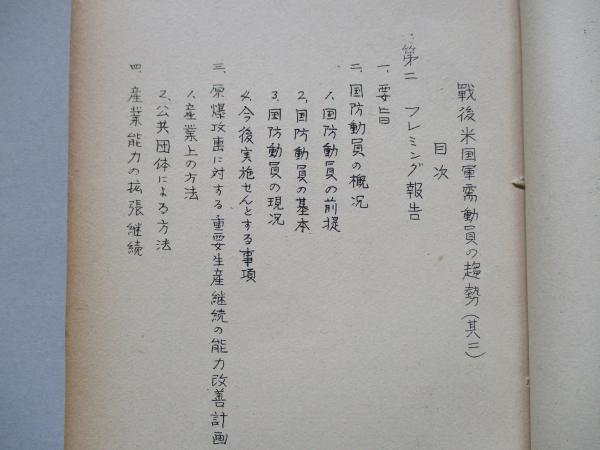 戰後米国軍需動員の趨勢(其二)
目次
第二 フレミング報告
一、要旨
二、国防動員の概況
1.国防動員の前提
2.国防動員の基本
3.国防動員の現況
4.今後実施せんとする事項
三、原爆攻撃に対する重要生産継続の能力改善計画
1.産業上の方法
2.公共団体による方法
四、産業能力の拡張継続